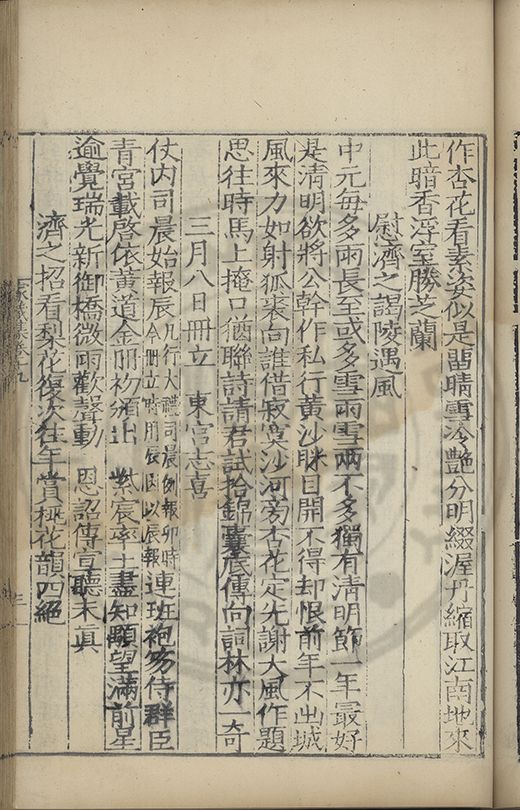 作杏花看素姿似是留晴雪冷艷分明綴渥丹縮取江南地來
此暗香浮室勝芝蘭
慰濟之謁陵遇風
中元每多雨長至或多雪雨雪兩不多獨有清明節一年最好
是清明欲將公幹作私行黃沙眯目開不得却恨前年不出城
風來力如射狐裘向誰借寂寞沙河旁杏花定先謝大風作題
思往時馬上掩口猶聯詩請君試拾錦囊底傳向詞林亦一奇
三月八日冊立 東宮志喜
仗內司晨始報辰凡行大禮司晨例報卯時今冊立時用辰因以辰報連班袍笏侍群臣
青宮載啓依黃道金冊初頒出 紫宸率土盡知顒望滿前星
逾覺瑞光新御橋微雨歡聲動 恩詔傳宣聽未真
濟之招看梨花復次往年賞桃花韻四絕